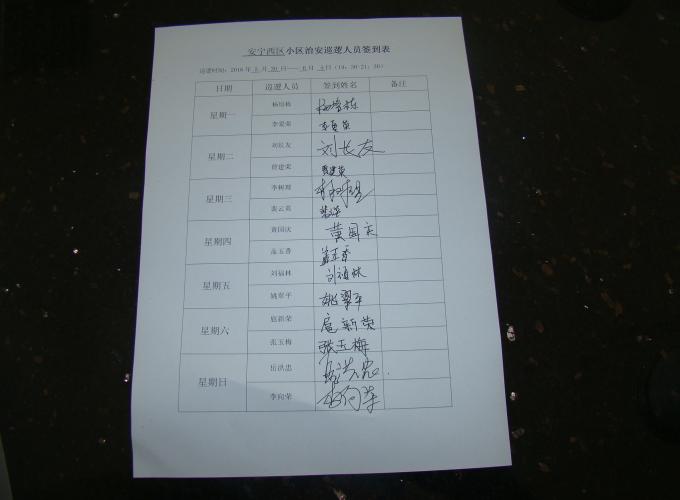 安宁西区小区治安巡逻人员签到表
巡逻时间：2016年5月30日——6月5日（19：30-21：30）
日期 巡逻人员 签到姓名 备注
星期一
杨培栋
李爱荣
星期二
刘长友 刘长友
曾建荣 曾建荣
星期三
李树理
裴云英
星期四
黄国庆 黄国庆
孟玉香 孟玉香
星期五
刘福林 刘福林
姚翠平 姚翠平
星期六
扈新荣 扈新荣
张玉梅 张玉梅
星期日
岳洪忠
李向荣 李向荣